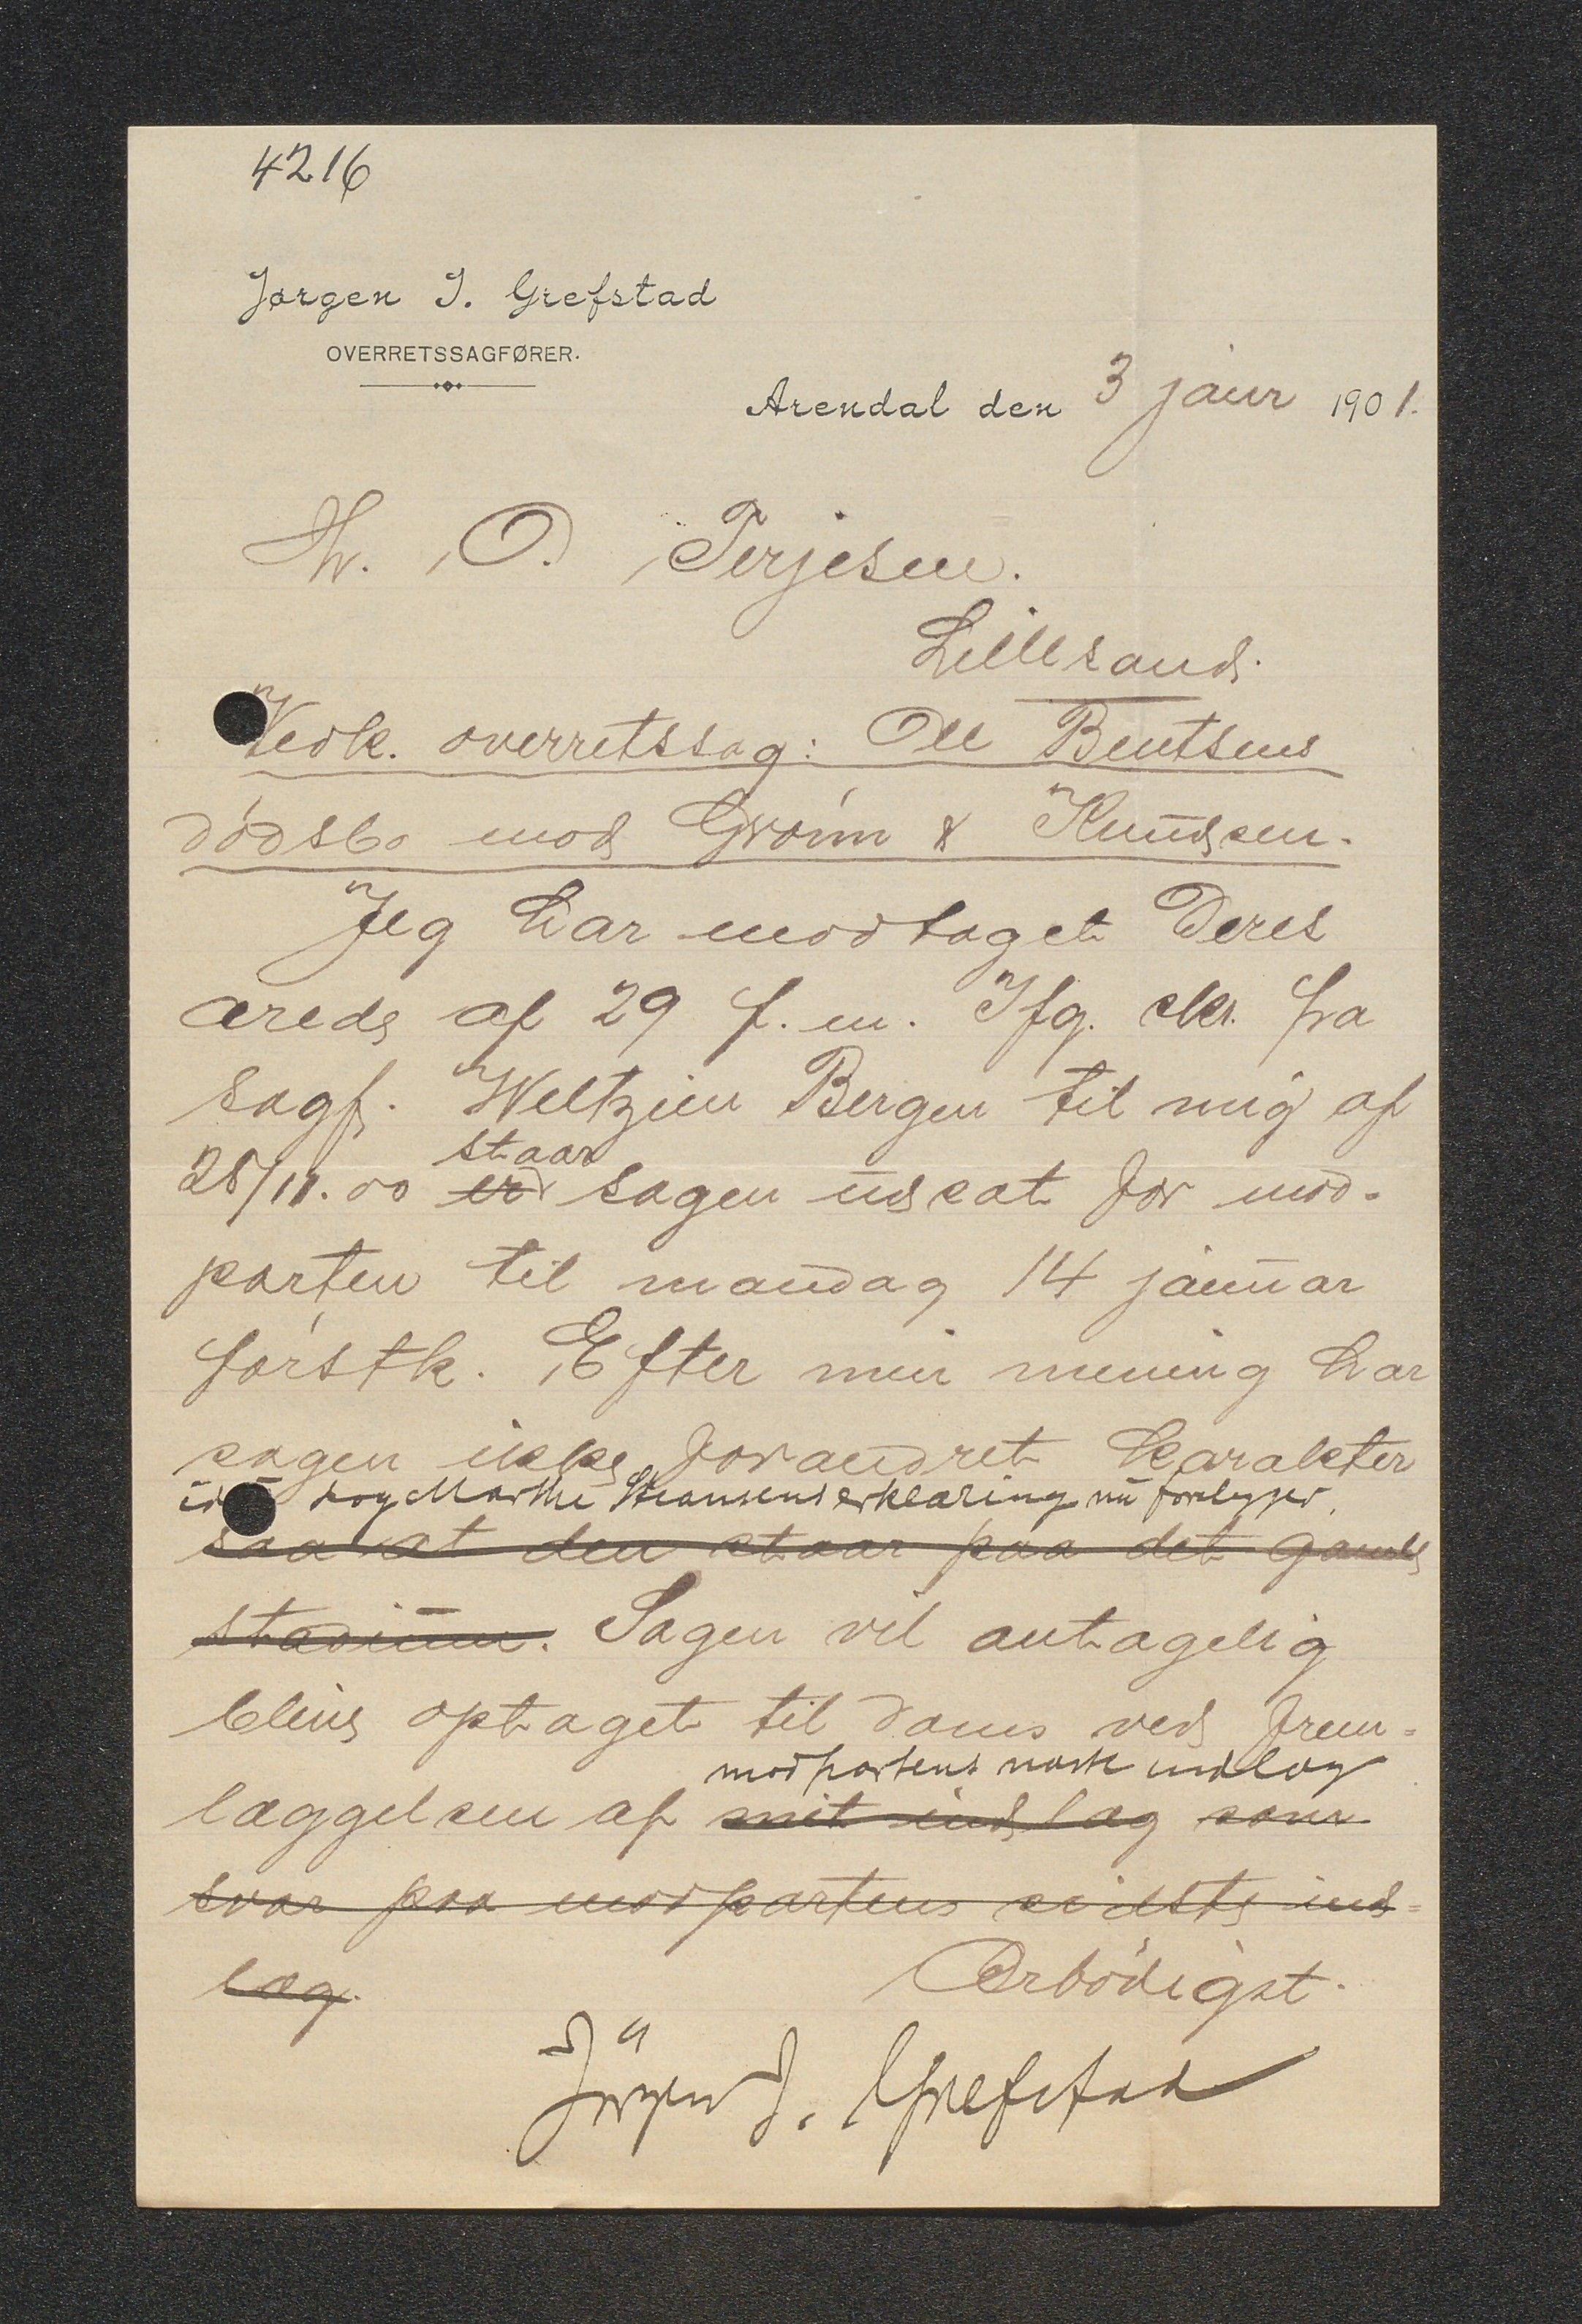 4216
Jørgen J. Grefstad
OVERRETSSAGFØRER.
Arendal den 3 janr 1901.
Hr. O. Terjesen.
Lillesand.
Vedk. overretssag: Ole Bentsens
dødsbo mod Grøinn & Knudsen.
Jeg har modtaget Deres
ærede af 29 f. m. Ifg. skr. fra
sagf. Weltzien Bergen til mig af
staar
28/11.00 er sagen udsat for mod-
parten til mandag 14 januar
førstk. Efter min mening har
sagen ikke forandret karakter
dog Marthe Hansens erklæring nu foreligger.
saa at den staar paa det gamle
stadium. Sagen vil antagelig
blive optaget til doms ved frem-
modpartens næste indlæg
læggelsen af mit indlæg som
svar paa modpartens sidste ind=
læg.
Ærbødigst.
Jörgen J. Grefstad